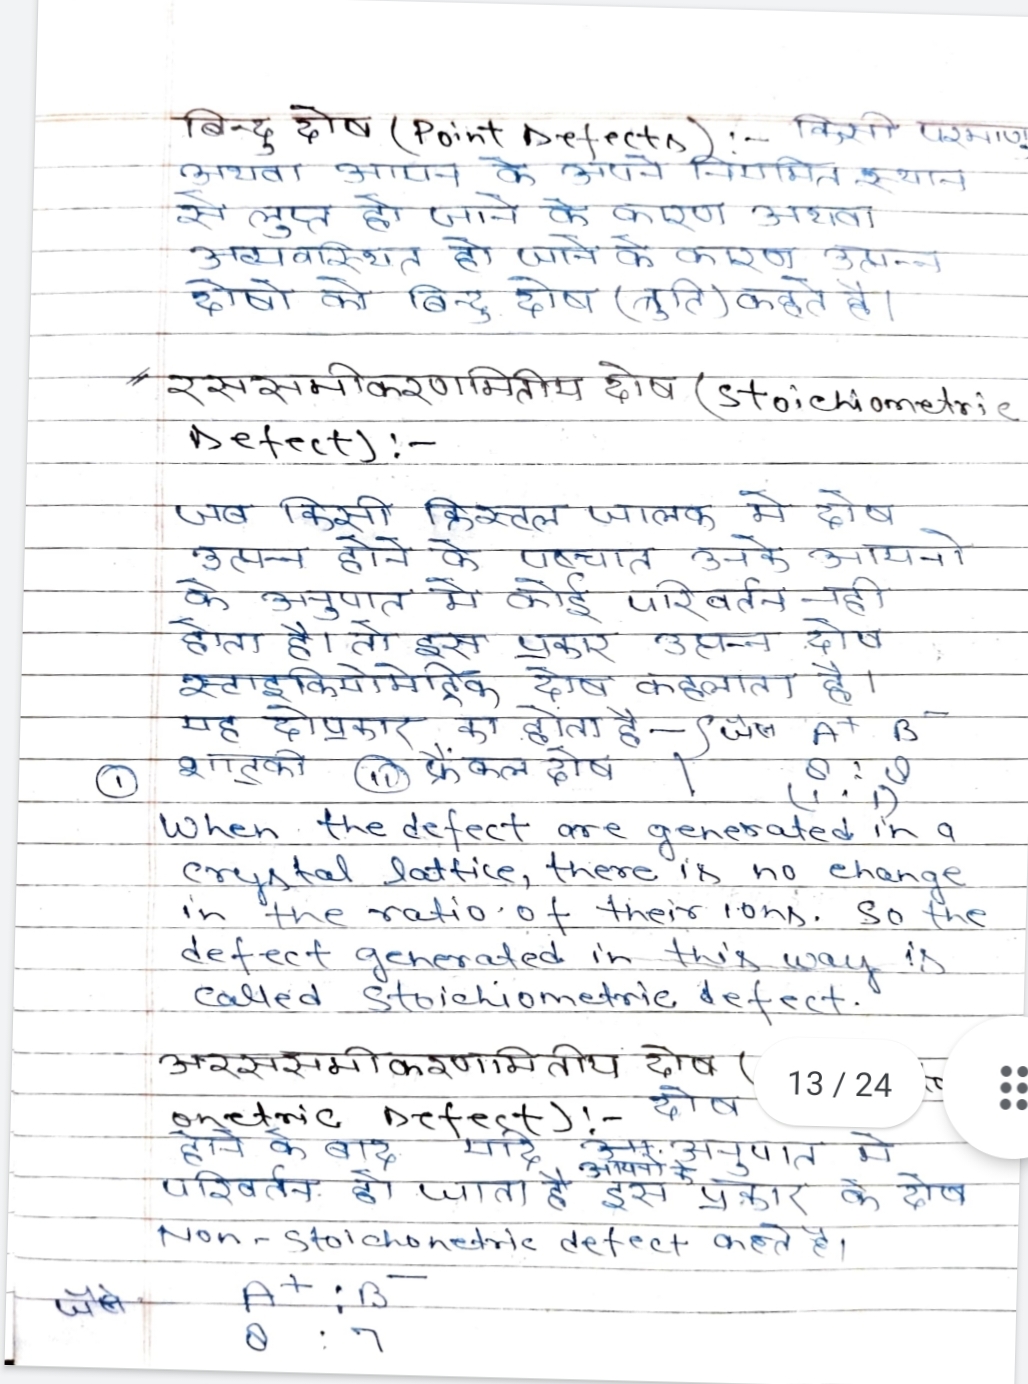 बिन्दु दोष (Point Defects) :- किसी परमाणु
अथवा आयन के अपने नियमित स्थान
से लुप्त हो जाने के कारण अथवा
अव्यवस्थित हो जाने के कारण उत्पन्न
दोषो को बिन्दु दोष (त्रुति) कहते है।
रससमीकरणमितीय दोष (Stoichiometric
Defect) :-
जब किसी क्रिस्तल जालक मे दोष
उत्पन्न होने के पश्चात उनके आयनो
के अनुपात मे कोई परिवर्तन नही
होता है। तो इस प्रकार उत्पन्न दोष
स्टाइकियोमेट्रिक दोष कहलाता है।
यह दो प्रकार का होता है – जैसे A⁺ B⁻
① शाट्की ⑪ फ्रैंकल दोष 8 : 8
(1 : 1)
When the defect are generated in a
crystal lattice, there is no change
in the ratio of their ions. So the
defect generated in this way is
called Stoichiometric defect.
अरससमीकरणमितीय दोष (
13 / 24
onetric Defect) :- दोष
होने के बाद यदि अनुपात मे
आयनो के
परिवर्तन हो जाता है इस प्रकार के दोष
Non-Stoichonetric defect कहते है।
जैसे A⁺ : B⁻
8 : 7